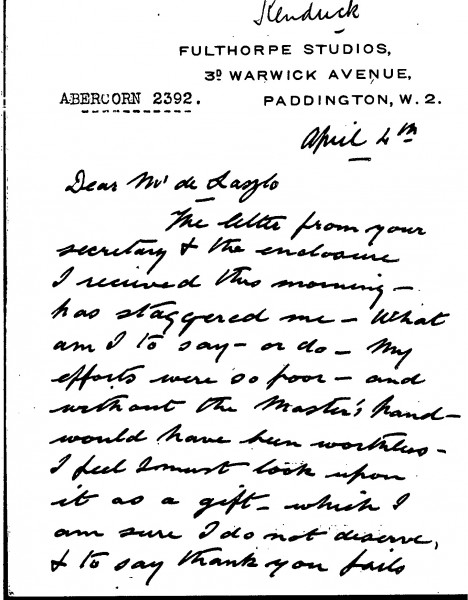 Kendrick
FULTHORPE STUDIOS,
3D WARWICK AVENUE,
ABERCORN 2392. PADDINGTON, W. 2.
April 4th
Dear Mr de Laszlo
The letter from your
secretary & the enclosure
I recieved this morning –
has staggered me – What
am I to say – or do – My
efforts were so poor – and
without the Master's hand –
would have been worthless –
I feel I must look upon
it as a gift – which I
am sure I do not deserve,
& to say thank you fails